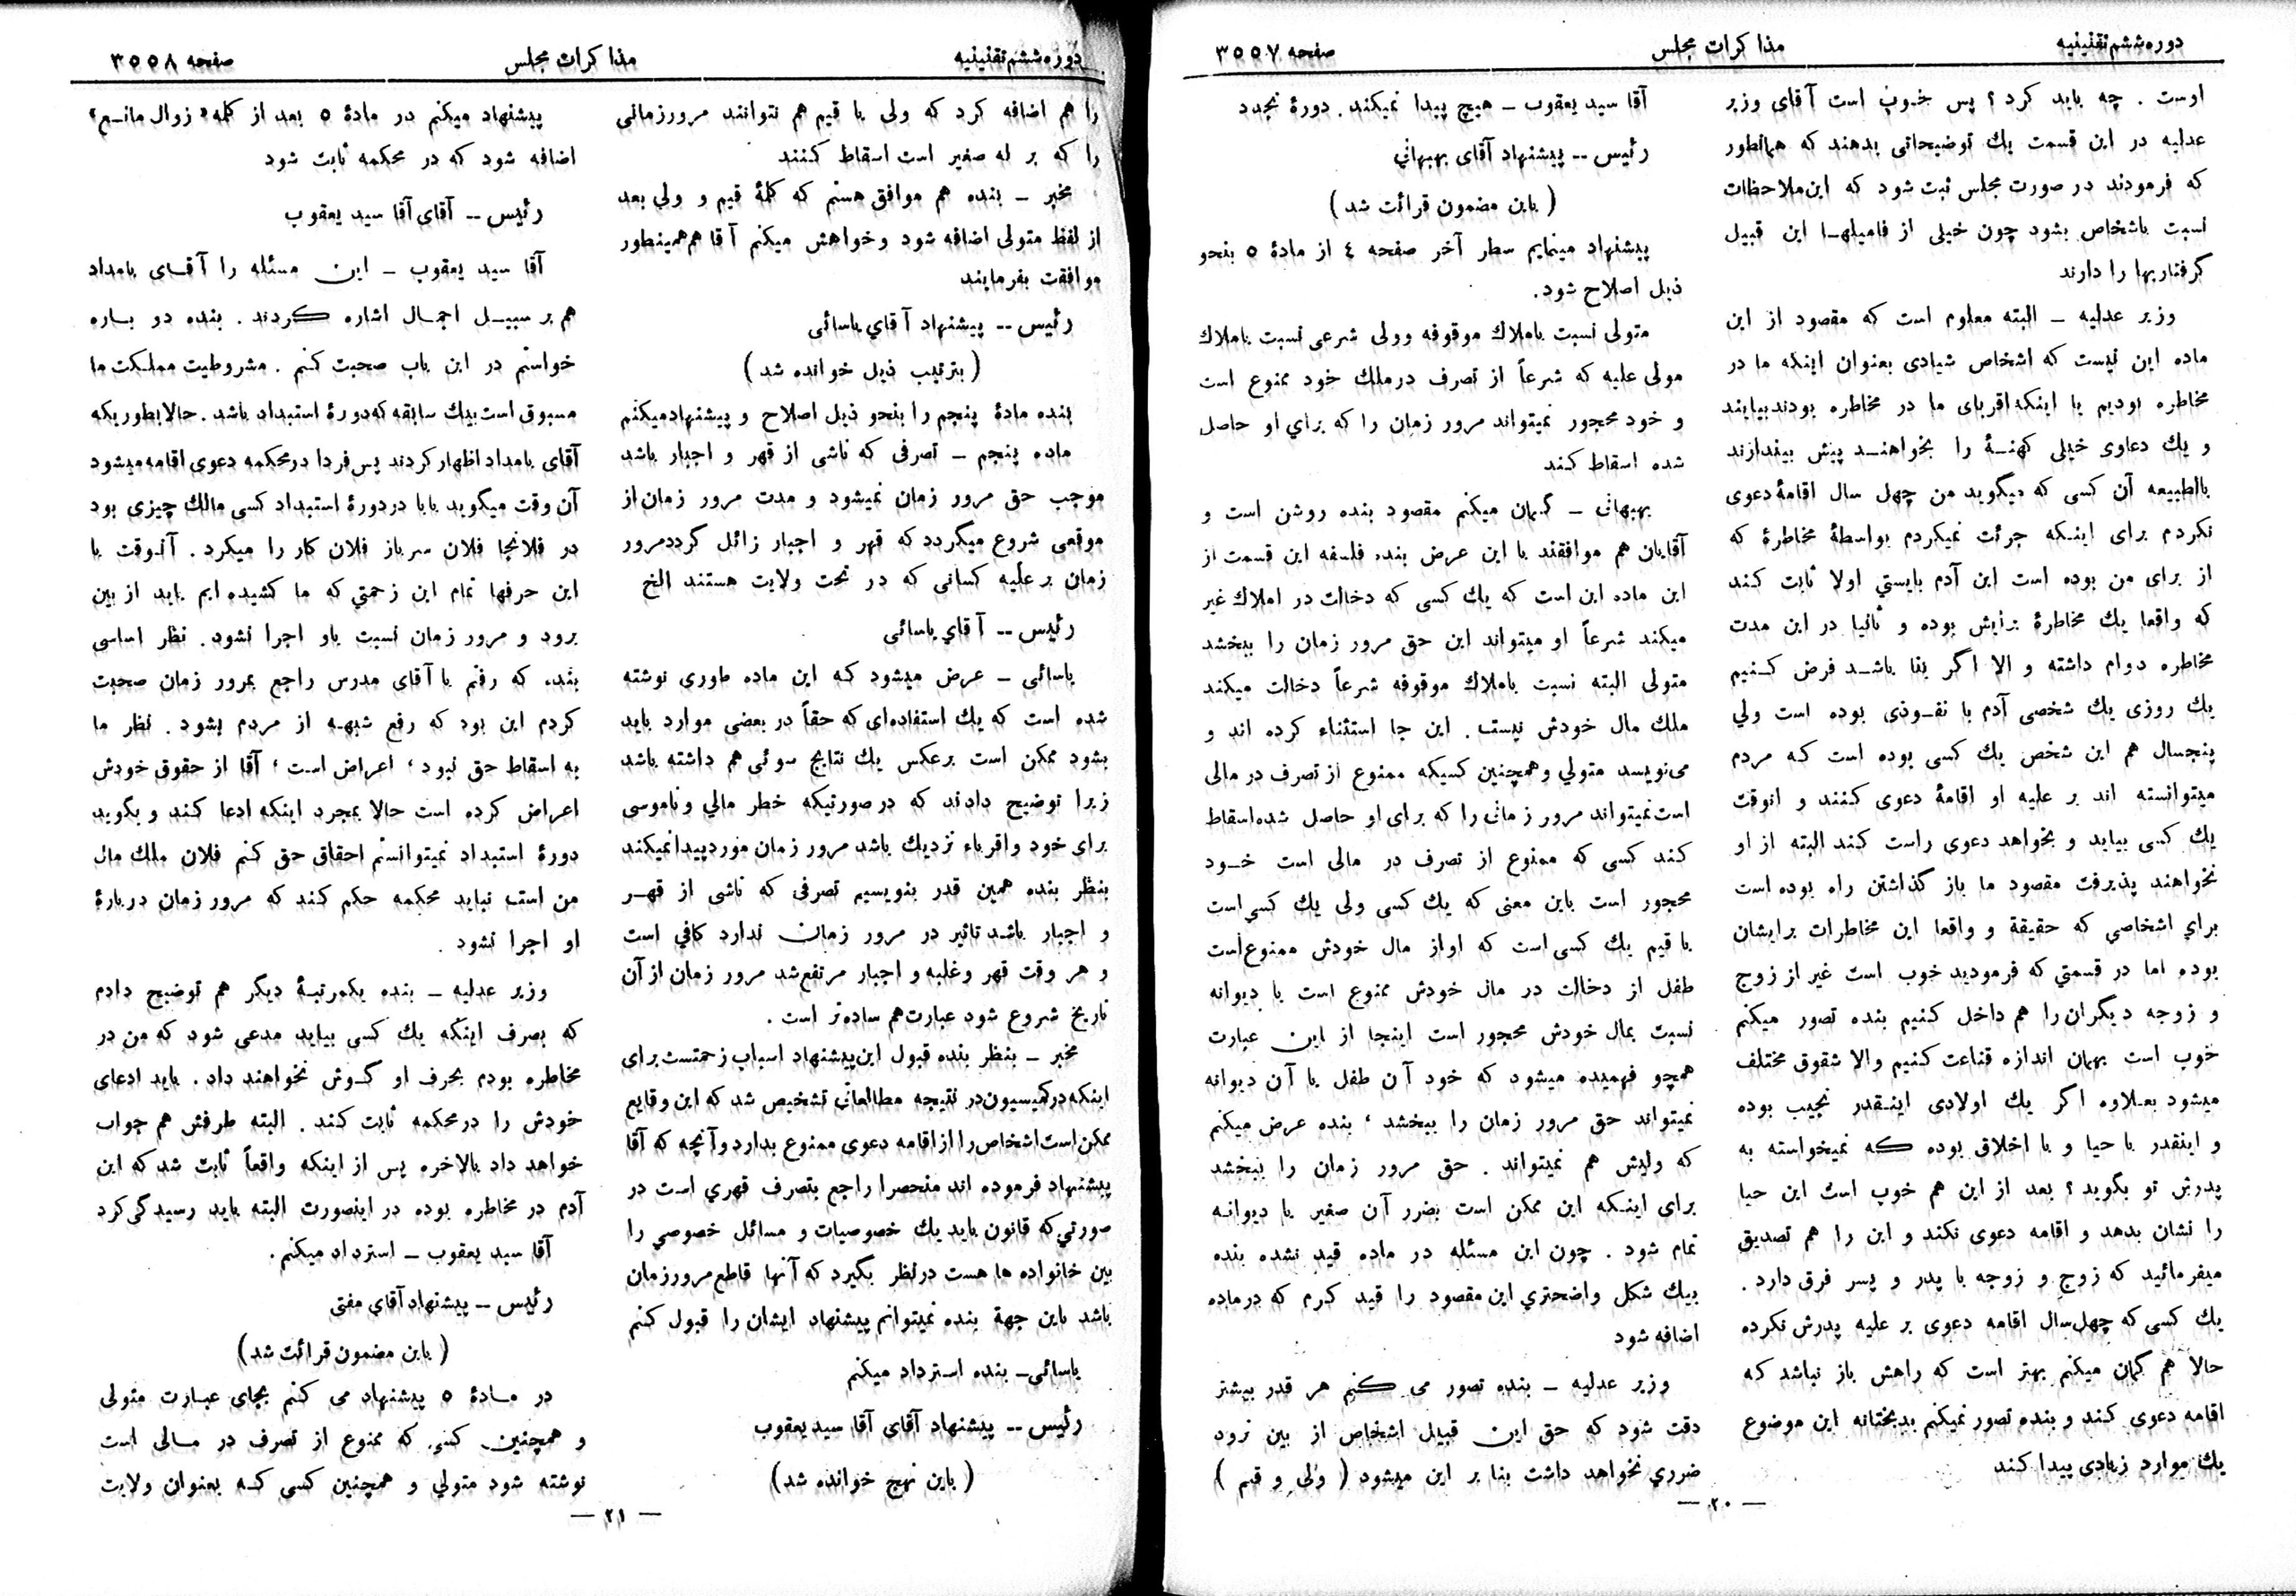 دوره ششم تقنینیه
مذاکرات مجلس
صفحه ۳۵۵۷
اوست . چه باید کرد ؟ پس خوب است آقای وزیر
عدلیه در این قسمت یك توضیحاتی بدهند که همانطور
که فرمودند در صورت مجلس ثبت شود که این ملاحظات
نسبت باشخاص بشود چون خیلی از فامیلها این قبیل
گرفتاریها را دارند
وزیر عدلیه ـ البته معلوم است که مقصود از این
ماده این نیست که اشخاص شیادی بعنوان اینکه ما در
مخاطره بودیم یا اینکه اقربای ما در مخاطره بودند بیایند
و یك دعاوی خیلی کهنهٔ را بخواهند پیش بیندازند
بالطبیعه آن کسی که میگوید من چهل سال اقامهٔ دعوی
نکردم برای اینکه جرئت نمیکردم بواسطهٔ مخاطرهٔ که
از برای من بوده است این آدم بایستي اولا ثابت کند
که واقعا یك مخاطرهٔ برایش بوده و ثانیا در این مدت
مخاطره دوام داشته و الا اگر بنا باشد فرض کنیم
یك روزی یك شخصی آدم با نفوذی بوده است ولي
پنجسال هم این شخص یك کسی بوده است که مردم
میتوانسته اند بر علیه او اقامهٔ دعوی کنند و انوقت
یك کسی بیاید و بخواهد دعوی راست کند البته از او
نخواهند پذیرفت مقصود ما باز گذاشتن راه بوده است
براي اشخاصي که حقیقة و واقعا این مخاطرات برایشان
بوده اما در قسمتي که فرمودید خوب است غیر از زوج
و زوجه دیگران را هم داخل کنیم بنده تصور میکنم
خوب است بهمان اندازه قناعت کنیم والا شقوق مختلف
میشود بعلاوه اگر یك اولادی اینقدر نجیب بوده
و اینقدر با حیا و با اخلاق بوده که نمیخواسته به
پدرش تو بگوید ؟ بعد از این هم خوب است این حیا
را نشان بدهد و اقامه دعوی نکند و این را هم تصدیق
میفرمائید که زوج و زوجه با پدر و پسر فرق دارد .
یك کسی که چهل سال اقامه دعوی بر علیه پدرش نکرده
حالا هم گمان میکنم بهتر است که راهش باز نباشد که
اقامه دعوی کند و بنده تصور نمیکنم بدبختانه این موضوع
یك موارد زیادی پیدا کند
آقا سید یعقوب ـ هیچ پیدا نمیکند . دورهٔ تجدد
رئیس -- پیشنهاد آقای بهبهانی
( باین مضمون قرائت شد )
پیشنهاد مینمایم سطر آخر صفحه ٤ از مادهٔ ٥ بنحو
ذیل اصلاح شود.
متولی نسبت باملاك موقوفه وولی شرعی نسبت باملاك
مولی علیه که شرعاً از تصرف در ملك خود ممنوع است
و خود محجور نمیتواند مرور زمان را که براي او حاصل
شده اسقاط کند
بهبهانی ـ گمان میکنم مقصود بنده روشن است و
آقایان هم موافقند با این عرض بنده فلسفه این قسمت از
این ماده این است که یك کسی که دخالت در املاك غیر
میکند شرعاً او میتواند این حق مرور زمان را ببخشد
متولی البته نسبت باملاك موقوفه شرعاً دخالت میکند
ملك مال خودش نیست . این جا استثناء کرده اند و
می‌نویسد متولي و همچنین کسیکه ممنوع از تصرف در مالی
است نمیتواند مرور زمانی را که برای او حاصل شده اسقاط
کند کسی که ممنوع از تصرف در مالی است خود
محجور است باین معنی که یك کسی ولی یك کسي است
یا قیم یك کسی است که او از مال خودش ممنوع است
طفل از دخالت در مال خودش ممنوع است یا دیوانه
نسبت بمال خودش محجور است اینجا از این عبارت
همچو فهمیده میشود که خود آن طفل یا آن دیوانه
نمیتواند حق مرور زمان را ببخشد ، بنده عرض میکنم
که ولیش هم نمیتواند . حق مرور زمان را ببخشد
برای اینکه این ممکن است بضرر آن صغیر یا دیوانه
تمام شود . چون این مسئله در ماده قید نشده بنده
بیك شکل واضحتري این مقصود را قید کرم که در ماده
اضافه شود
وزیر عدلیه ـ بنده تصور می کنم هر قدر بیشتر
دقت شود که حق این قبیل اشخاص از بین نرود
ضرري نخواهد داشت بنا بر این میشود ( ولی و قیم )
— ۲۰ —
دوره ششم تقنینیه
مذاکرات مجلس
صفحه ۳۵۵۸
را هم اضافه کرد که ولی یا قیم هم نتوانند مرور زمانی
را که بر له صغیر است اسقاط کنند
مخبر ـ بنده هم موافق هستم که کلمهٔ قیم و ولي بعد
از لفظ متولی اضافه شود و خواهش میکنم آقا هم همینطور
موافقت بفرمایند
رئیس -- پیشنهاد آقاي یاسائی
( بترتیب ذیل خوانده شد )
بنده مادهٔ پنجم را بنحو ذیل اصلاح و پیشنهاد میکنم
ماده پنجم ـ تصرفی که ناشی از قهر و اجبار باشد
موجب حق مرور زمان نمیشود و مدت مرور زمان از
موقعی شروع میگردد که قهر و اجبار زائل گردد مرور
زمان بر علیه کسانی که در تحت ولایت هستند الخ
رئیس -- آقاي یاسائی
یاسائی ـ عرض میشود که این ماده طوری نوشته
شده است که یك استفاده‌ای که حقاً در بعضی موارد باید
بشود ممکن است برعکس یك نتایج سوئی هم داشته باشد
زیرا توضیح دادند که در صورتیکه خطر مالي و ناموسی
برای خود و اقرباء نزدیك باشد مرور زمان مورد پیدا نمیکند
بنظر بنده همین قدر بنویسیم تصرفی که ناشی از قهر
و اجبار باشد تاثیر در مرور زمان ندارد کافي است
و هر وقت قهر و غلبه و اجبار مرتفع شد مرور زمان از آن
تاریخ شروع شود عبارت هم ساده‌تر است .
مخبر ـ بنظر بنده قبول این پیشنهاد اسباب زحمتست برای
اینکه در کمیسیون در نتیجه مطالعاتی تشخیص شد که این وقایع
ممکن است اشخاص را از اقامه دعوی ممنوع بدارد و آنچه که آقا
پیشنهاد فرموده اند منحصرا راجع بتصرف قهري است در
صورتي که قانون باید یك خصوصیات و مسائل خصوصي را
بین خانواده ها هست در نظر بگیرد که آنها قاطع مرور زمان
باشد باین جهة بنده نمیتوانم پیشنهاد ایشان را قبول کنم
یاسائی- بنده استرداد میکنم
رئیس -- پیشنهاد آقای آقا سید یعقوب
( باین نهج خوانده شد )
پیشنهاد میکنم در مادهٔ ٥ بعد از کلمه «زوال مانع»
اضافه شود که در محکمه ثابت شود
رئیس -- آقای آقا سید یعقوب
آقا سید یعقوب ـ این مسئله را آقای بامداد
هم بر سبیل اجمال اشاره کردند . بنده دو باره
خواستم در این باب صحبت کنم . مشروطیت مملکت ما
مسبوق است بیك سابقه که دورهٔ استبداد باشد . حالا بطوریکه
آقای بامداد اظهار کردند پس فردا در محکمه دعوی اقامه میشود
آن وقت میگوید بابا در دورهٔ استبداد کسی مالك چیزی بود
در فلانجا فلان سرباز فلان کار را میکرد . آنوقت با
این حرفها تمام این زحمتي که ما کشیده ایم باید از بین
برود و مرور زمان نسبت باو اجرا نشود . نظر اساسی
بنده که رفتم با آقای مدرس راجع بمرور زمان صحبت
کردم این بود که رفع شبهه از مردم بشود . نظر ما
به اسقاط حق نبود ، اعراض است ، آقا از حقوق خودش
اعراض کرده است حالا بمجرد اینکه ادعا کند و بگوید
دورهٔ استبداد نمیتوانستم احقاق حق کنم فلان ملك مال
من است نباید محکمه حکم کند که مرور زمان دربارهٔ
او اجرا نشود .
وزیر عدلیه ـ بنده یکمرتبهٔ دیگر هم توضیح دادم
که بصرف اینکه یك کسی بیاید مدعی شود که من در
مخاطره بودم بحرف او گوش نخواهند داد . باید ادعای
خودش را در محکمه ثابت کند . البته طرفش هم جواب
خواهد داد بالاخره پس از اینکه واقعاً ثابت شد که این
آدم در مخاطره بوده در اینصورت البته باید رسیدگی کرد
آقا سید یعقوب ـ استرداد میکنم.
رئیس -- پیشنهاد آقاي مفتی
( باین مضمون قرائت شد )
در مادهٔ ٥ پیشنهاد می کنم بجای عبارت متولی
و همچنین کسی که ممنوع از تصرف در مالی است
نوشته شود متولي و همچنین کسی که بعنوان ولایت
— ۲۱ —